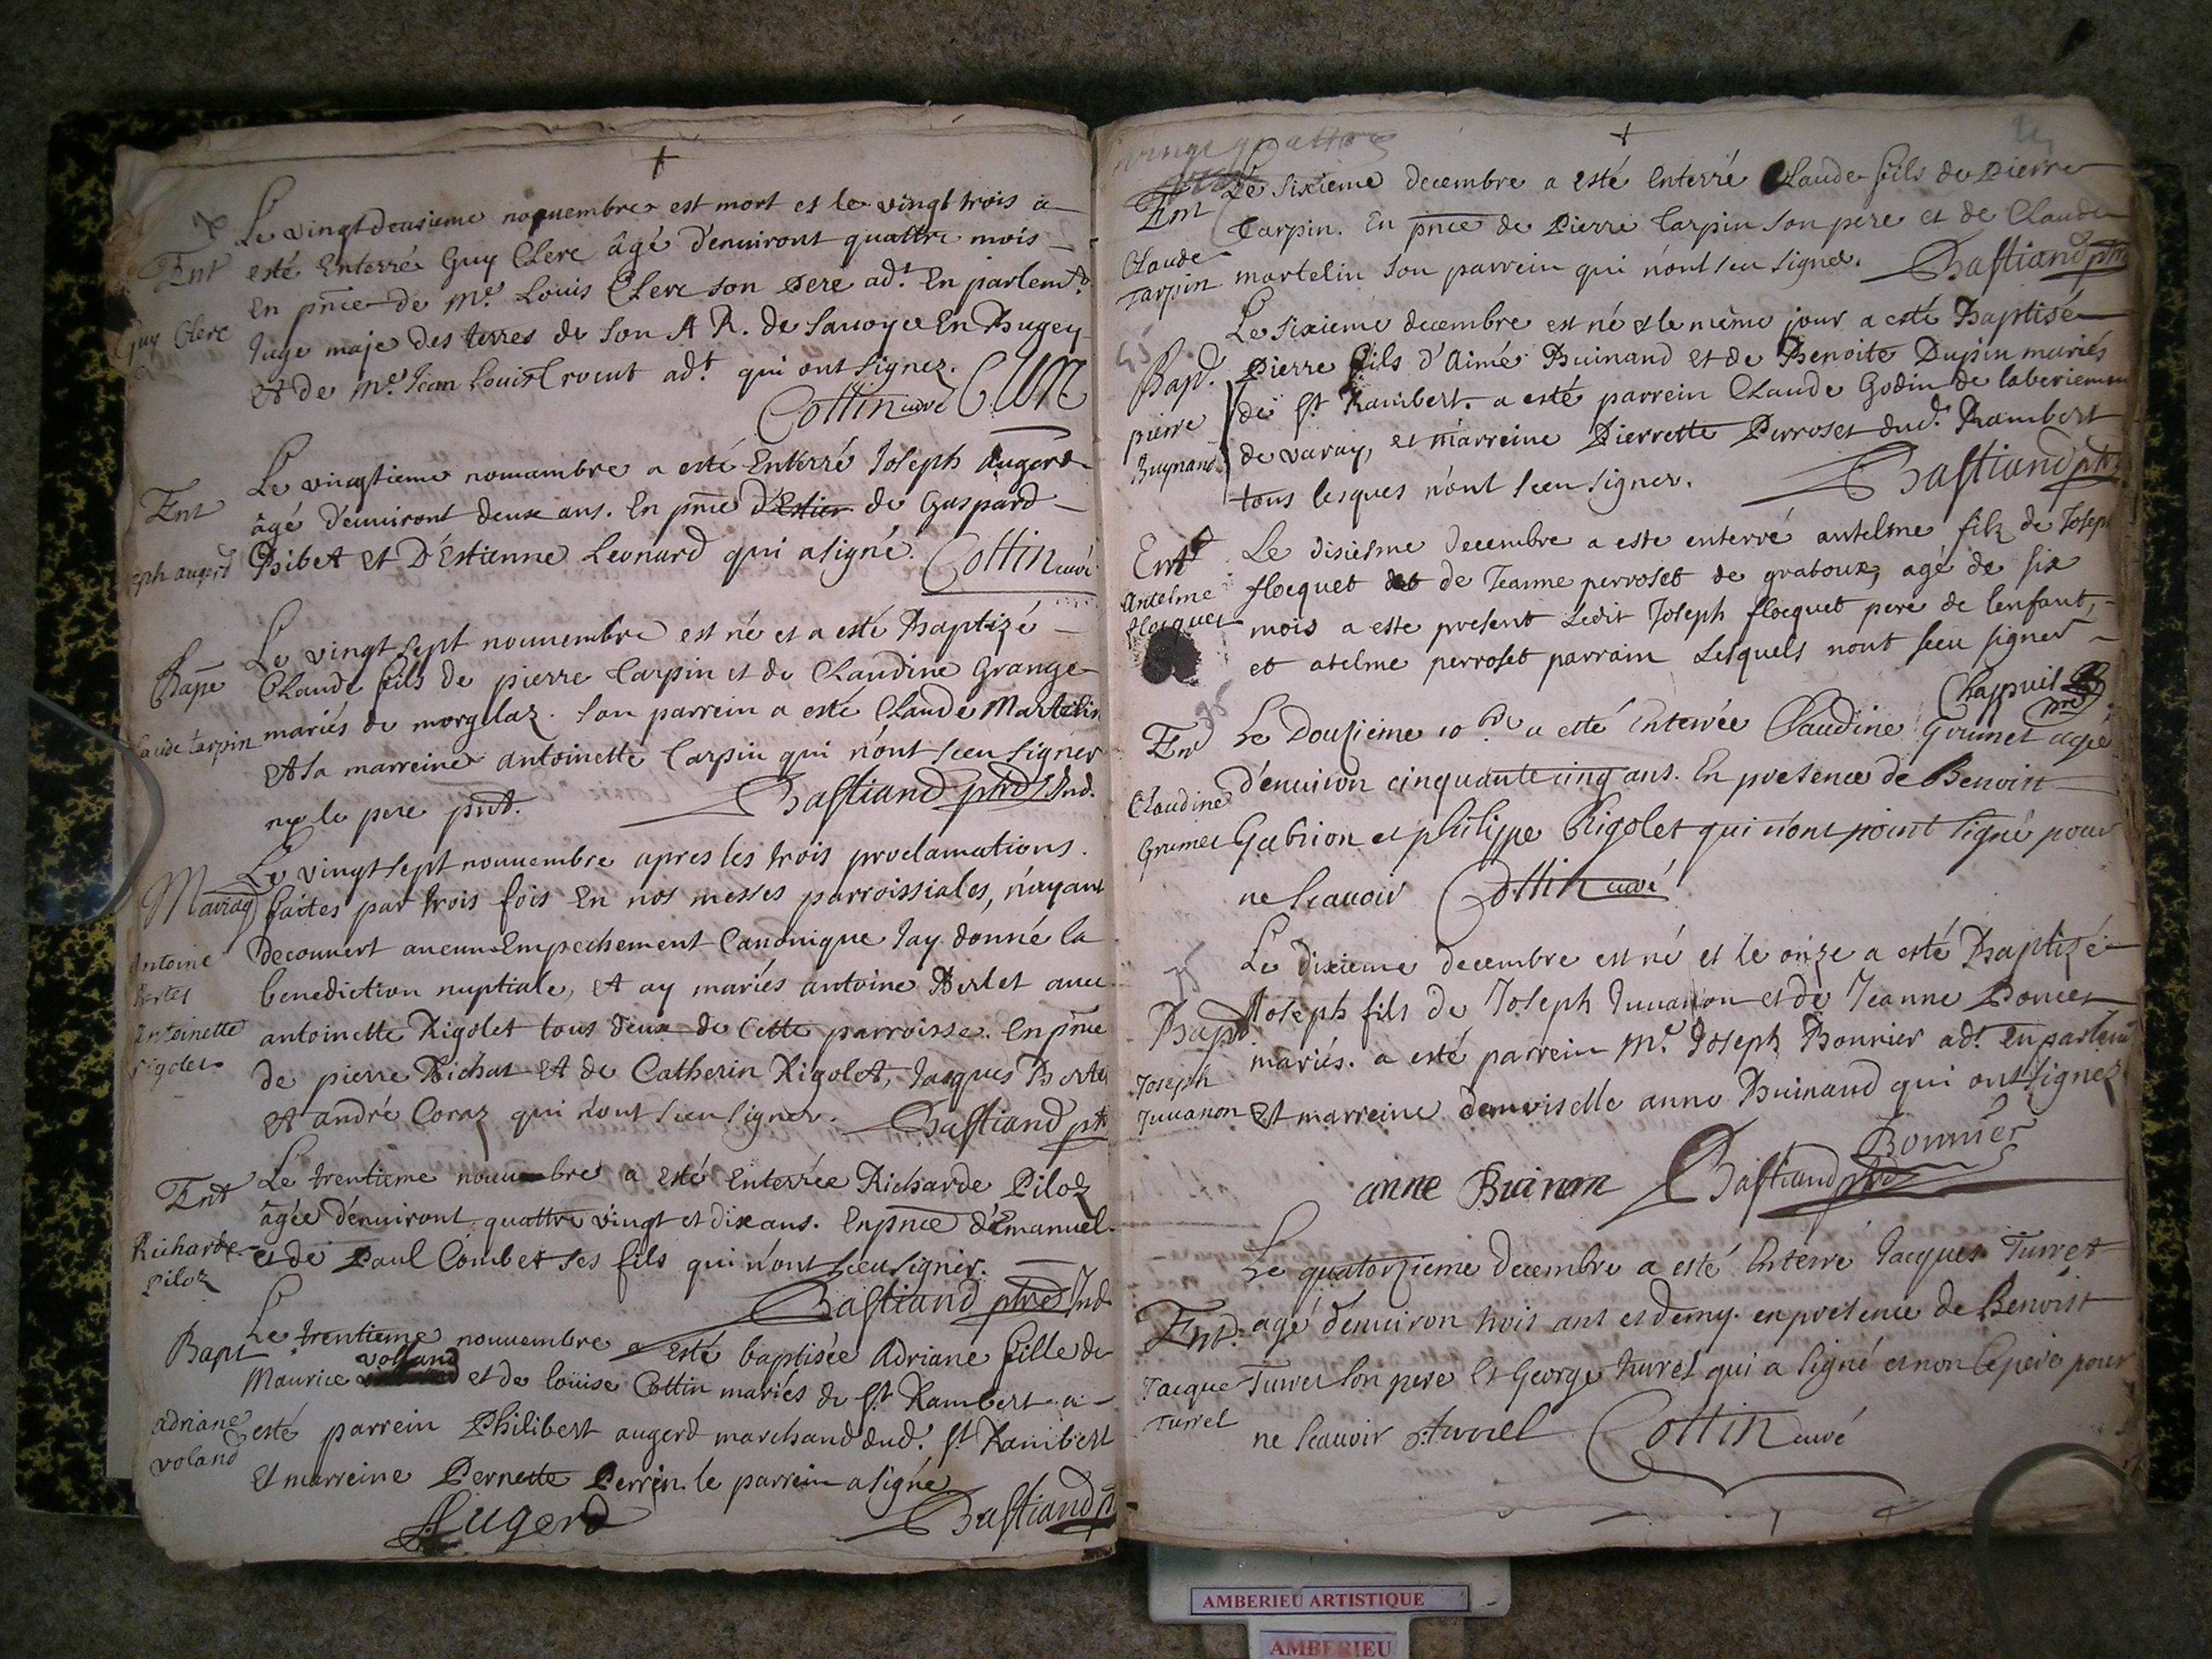 Le vingtdeusieme nouuembre est mort et le vingt trois a
Ent
esté Enterré Guy Clerc âgé d'enuiront quattre mois
En pnce de Mr. Louis Clerc son Pere adt. En parlemt.
Guy Clerc
Juge maje des terres de son A R. de Sauoye En Bugey
et de Mr. Jean Louis Crocut adt. qui ont signez.
Cottin curé Clerc
Le vingtieme nouuambre a esté Enterré Joseph Augerd
Ent
âgé d'enuiront deux ans. En pnce de Gaspard
eph augerd
Bibet et D'Estienne Leonard qui a signé. Cottin curé
Le vingt sept nouuembre est né et a esté Baptizé
Bape
Claude fils de pierre Carpin et de Claudine Grange
mariés de morgelaz. Son parrein a esté Claude Martelin
laude Carpin
et sa marreine antoinette Carpin qui n'ont sceu signer
ny le pere pnt. Bastiand ptre Ind.
Le vingt sept nouuembre apres les trois proclamations
Mariag
faites par trois fois En nos messes parroissiales, n'ayant
decouuert aucun Empechement Canonique Jay donné la
Antoine
Bertet
benediction nuptiale, et ay mariés antoine Bertet auec
Antoinette
antoinette Rigolet tous deux de Cette parroisse. En pnce
Rigolet
de pierre Bichat et de Catherin Rigolet, Jacques Bertet
et andré Coraz qui n'ont sceu signer. Bastiand ptre
Ent
Le trentieme nouuembre a esté Enterrée Richarde Piloz
âgée d'enuiront quattre vingt et dix ans. En pnce d'Emanuel
Richarde
et de Paul Combet ses fils qui n'ont sceu signer.
Piloz
Bastiand ptre Ind.
Bapt
Le trentieme nouuembre a esté baptisée Adriane fille de
Maurice volland et de loüise Cottin mariés de St Rambert a
adriane
esté parrein Philibert augerd marchand dud. St Rambert
voland
Et marreine Pernette Perrin. le parrein a signé
Augerd Bastiand p
vingt quattre
Le sixieme decembre a esté Enterré Claude fils de Pierre
Ent
Carpin. En pnce de Pierre Carpin son pere et de Claude
Claude
Carpin
martelin son parrein qui n'ont sceu signer. Bastiand ptre
Le sixieme decembre est né et le même jour a esté Baptisé
Bapt.
Pierre fils d'Aimé Buinand et de Benoite Dupin mariés
de St Rambert. a esté parrein Claude Godin de
pierre
de varay, et marreine Pierrette Perroset dud. Rambert
Buynand
tous lesques n'ont sceu signer. Bastiand ptre
Ent
Le disiesme decembre a este enterré antelme filz de Joseph
Antelme
flocquet et de Jeanne perroset de gratoux, agé de six
flocquet
mois a este present Ledit Joseph flocquet pere de lenfant,
et atelme perroset parrain Lesquels nont sceu signer
Chappuis ptre
Ent
Le Douzieme 10bre a esté Enterrée Claudine Grumet agée
d'enuiron cinquante cinq ans. En presence de Benoist
Claudine
Grumet
Gabrion et philippe Rigolet qui n'ont point signé pour
ne scauoir Cottin curé
Le dixieme decembre est né et le onze a esté Baptizé
Bapt
Joseph fils de Joseph Juuanon et de Jeanne Poncet
mariés. a esté parrein Mr. Joseph Bonnier adt. en parlem
Joseph
Juuanon
Et marreine demoiselle anne Buinand qui ont signez
Bonnier
anne Buinan Bastiand ptre
Le quatorzieme decembre a esté Enterré Jacques Turrel
Ent.
agé d'enuiron trois ans et demy. en presence de Benoist
Jacque
Turrel son pere Et George turrel qui a signé et non Le pere pour
Turrel
ne scauoir g. turrel Cottin curé
AMBERIEU ARTISTIQUE
AMBERIEU